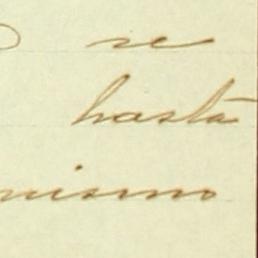 se
hasta
mismo